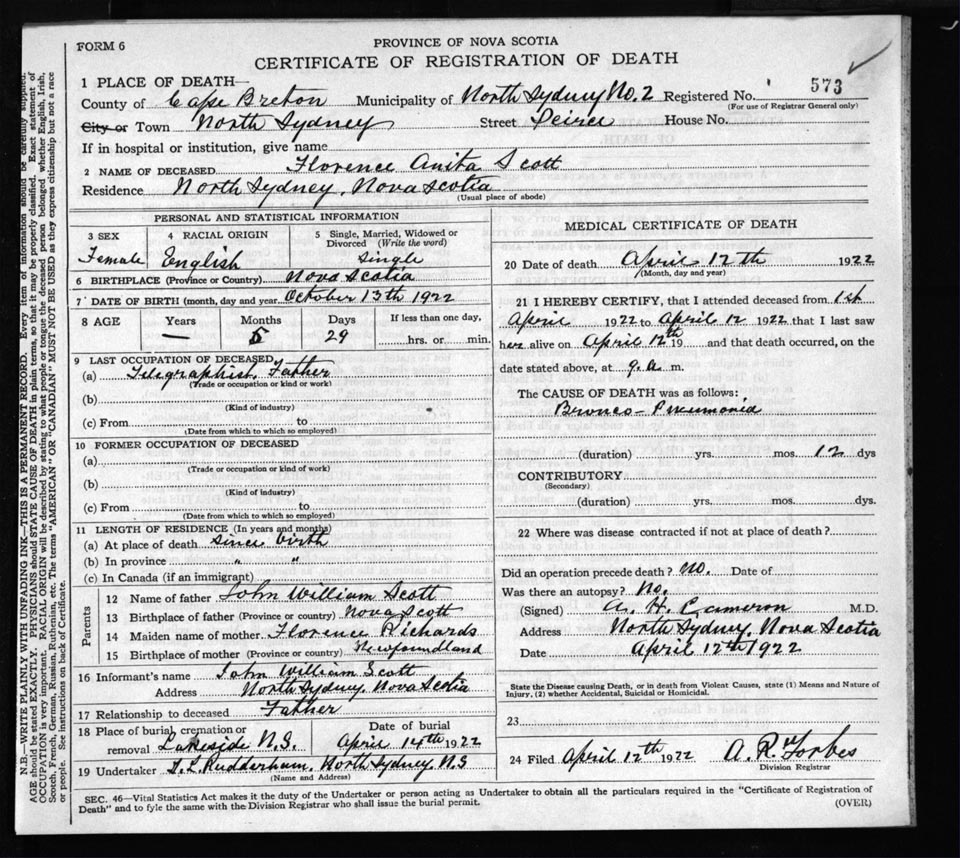 FORM 6
PROVINCE OF NOVA SCOTIA
CERTIFICATE OF REGISTRATION OF DEATH
573
1 PLACE OF DEATH—
County of Cape Breton Municipality of North Sydney No. 2 Registered No.
(For use of Registrar General only)
City or Town North Sydney Street Peirce House No.
If in hospital or institution, give name
2 NAME OF DECEASED Florence Anita Scott
Residence North Sydney, Nova Scotia
(Usual place of abode)
PERSONAL AND STATISTICAL INFORMATION
3 SEX Female
4 RACIAL ORIGIN English
5 Single, Married, Widowed or Divorced (Write the word) Single
6 BIRTHPLACE (Province or Country) Nova Scotia
7 DATE OF BIRTH (month, day and year October 13th 1922
8 AGE Years — Months 5 Days 29 If less than one day, hrs. or min.
9 LAST OCCUPATION OF DECEASED
(a) Telegraphist, Father
(Trade or occupation or kind or work)
(b)
(Kind of industry)
(c) From to
(Date from which to which so employed)
10 FORMER OCCUPATION OF DECEASED
(a)
(Trade or occupation or kind of work)
(b)
(Kind of industry)
(c) From to
(Date from which to which so employed)
11 LENGTH OF RESIDENCE (In years and months)
(a) At place of death since birth
(b) In province " "
(c) In Canada (if an immigrant)
Parents
12 Name of father John William Scott
13 Birthplace of father (Province or country) Nova Scott
14 Maiden name of mother Florence Richards
15 Birthplace of mother (Province or country) Newfoundland
16 Informant's name John William Scott
Address North Sydney, Nova Scotia
17 Relationship to deceased Father
18 Place of burial, cremation or removal Lakeside N.S.
Date of burial April 14th 1922
19 Undertaker T. L. Rudderham, North Sydney, N.S
(Name and Address)
MEDICAL CERTIFICATE OF DEATH
20 Date of death April 12th 1922
(Month, day and year)
21 I HEREBY CERTIFY, that I attended deceased from 1st
April 1922 to April 12 1922 that I last saw
her alive on April 12th 19 and that death occurred, on the
date stated above, at 9. a. m.
The CAUSE OF DEATH was as follows:
Bronco-Pneumonia
(duration) yrs. mos. 12 dys
CONTRIBUTORY
(Secondary)
(duration) yrs. mos. dys.
22 Where was disease contracted if not at place of death?
Did an operation precede death? no. Date of
Was there an autopsy? No.
(Signed) A. H. Cameron M.D.
Address North Sydney, Nova Scotia
Date April 12th 1922
State the Disease causing Death, or in death from Violent Causes, state (1) Means and Nature of
Injury, (2) whether Accidental, Suicidal or Homicidal.
23
24 Filed April 12th 1922 A. R. Forbes
Division Registrar
SEC. 46—Vital Statistics Act makes it the duty of the Undertaker or person acting as Undertaker to obtain all the particulars required in the "Certificate of Registration of
Death" and to fyle the same with the Division Registrar who shall issue the burial permit.
(OVER)
N.B.—WRITE PLAINLY WITH UNFADING INK—THIS IS A PERMANENT RECORD. Every item of information should be carefully supplied.
AGE should be stated EXACTLY. PHYSICIANS should STATE CAUSE OF DEATH in plain terms, so that it may be properly classified. Exact statement of
OCCUPATION is very important. RACIAL ORIGIN will be described by stating to what people or tongue the deceased person belonged whether English, Irish,
Scotch, French, German, Russian, Ruthenian, etc. The terms "AMERICAN" OR "CANADIAN" MUST NOT BE USED as they express citizenship but not a race
or people. See instructions on back of Certificate.